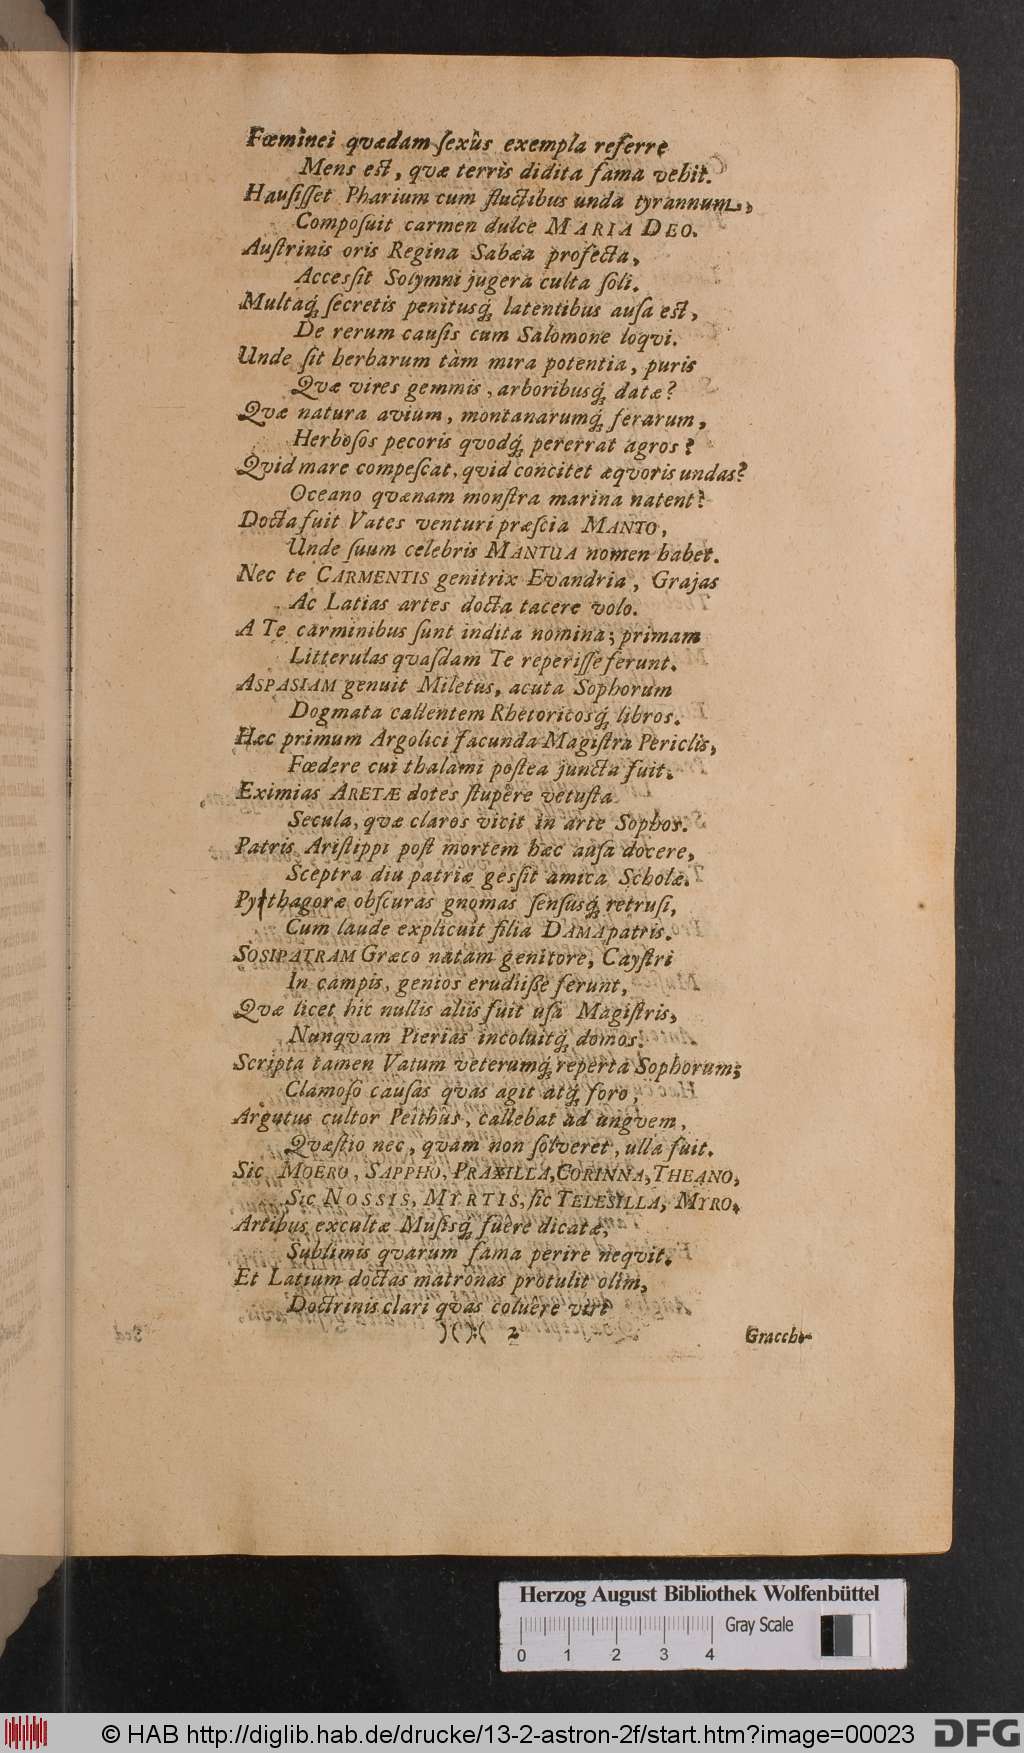 Fœminei qvædam ſexûs exempla referre
Mens eſt, qvæ terris didita fama vehit.
Hauſiſſet Pharium cum fluctibus unda tyrannum,
Compoſuit carmen dulce MARIA DEO.
Auſtrinis oris Regina Sabæa profecta,
Acceſſit Solymni jugera culta ſoli.
Multaq́; ſecretis penitusq́; latentibus auſa eſt,
De rerum cauſis cum Salomone loqvi.
Unde ſit herbarum tàm mira potentia, puris
Qvæ vires gemmis, arboribusq́; datæ?
Qvæ natura avium, montanarumq́; ferarum,
Herboſos pecoris qvodq́; pererrat agros?
Qvid mare compeſcat, qvid concitet æqvoris undas?
Oceano qvænam monſtra marina natent?
Docta fuit Vates venturi præſcia MANTO,
Unde ſuum celebris MANTUA nomen habet.
Nec te CARMENTIS genitrix Evandria, Grajas
Ac Latias artes docta tacere volo.
A Te carminibus ſunt indita nomina; primam
Litterulas qvaſdam Te reperiſſe ferunt.
ASPASIAM genuit Miletus, acuta Sophorum
Dogmata callentem Rhetoricosq́; libros.
Hæc primum Argolici facunda Magiſtra Periclis,
Fœdere cui thalami poſtea juncta fuit.
Eximias ARETÆ dotes ſtupêre vetuſta
Secula, qvæ claros vicit in arte Sophos.
Patris Ariſtippi poſt mortem hæc auſa docere,
Sceptra diu patriæ gesſit amica Scholæ.
Pytthagoræ obſcuras gnomas ſenſusq́; retruſi,
Cum laude explicuit filia DAMA patris.
SOSIPATRAM Græco natam genitore, Cayſtri
In campis, genios erudiiſſe ferunt,
Qvæ licet hîc nullis aliis fuit uſa Magiſtris,
Nunqvam Pierias incoluitq́; domos.
Scripta tamen Vatum veterumq́; reperta Sophorum;
Clamoſo cauſas qvas agit atq́; foro,
Argutus cultor Peithûs, callebat ad ungvem,
Qvæſtio nec, qvam non ſolveret, ulla fuit.
Sic MOERO, SAPPHO, PRAXILLA, CORINNA, THEANO,
Sic NOSSIS, MYRTIS, ſic TELESILLA, MYRO,
Artibus excultæ Muſisq́; fuêre dicatæ,
Sublimis qvarum fama perire neqvit.
Et Latium doctas matronas protulit olim,
Doctrinis clari qvas coluêre viri
)( ):( 2
Graccho-
Herzog August Bibliothek Wolfenbüttel
Gray Scale
0 1 2 3 4
© HAB http://diglib.hab.de/drucke/13-2-astron-2f/start.htm?image=00023
DFG